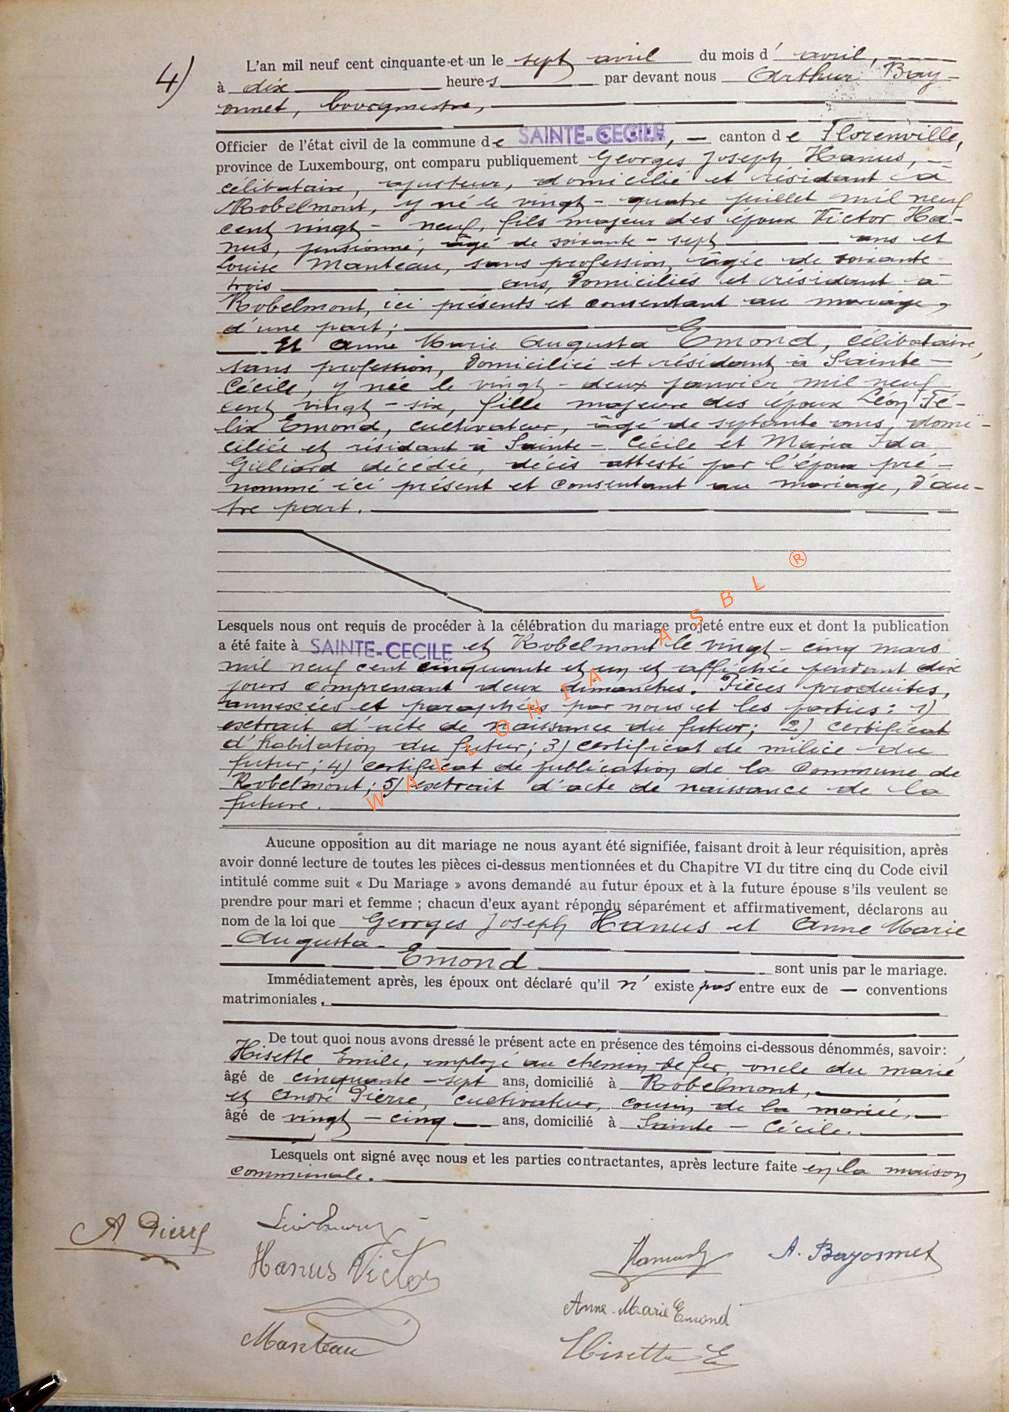 4)
L'an mil neuf cent cinquante et un le sept avril du mois d' avril,
à dix heures par devant nous Arthur Bay-
onnet, bourgmestre,
Officier de l'état civil de la commune de SAINTE-CECILE, canton de Florenville,
province de Luxembourg, ont comparu publiquement Georges Joseph Hanus,
célibataire, ajusteur, domicilié et résidant à
Robelmont, y né le vingt-quatre juillet mil neuf
cent vingt-neuf, fils majeur des époux Victor Ha-
nus, pensionné, âgé de soixante-sept ans et
Louise Manteau, sans profession, âgée de soixante
trois ans, domiciliés et résidant à
Robelmont, ici présents et consentant au mariage,
d'une part;
Et Anne Marie Augusta Emond, célibataire,
sans profession, domiciliée et résidant à Sainte-
Cécile, y née le vingt-deux janvier mil neuf
cent vingt-six, fille majeure des époux Léon Fé-
lix Emond, cultivateur, âgé de septante ans, domi-
cilié et résidant à Sainte-Cécile et Maria Ida
Gilliard décédée, décès attesté par l'époux pré-
nommé ici présent et consentant au mariage, d'au-
tre part.
Lesquels nous ont requis de procéder à la célébration du mariage projeté entre eux et dont la publication
a été faite à SAINTE-CECILE et Robelmont le vingt-cinq mars
mil neuf cent cinquante et un et affichée pendant dix
jours comprenant deux dimanches. Pièces produites,
annexées et paraphées par nous et les parties: 1)
extrait d'acte de naissance du futur; 2) certificat
d'habitation du futur; 3) certificat de milice du
futur; 4) certificat de publication de la commune de
Robelmont; 5) extrait d'acte de naissance de la
future.
WALLONIA ASBL ®
Aucune opposition au dit mariage ne nous ayant été signifiée, faisant droit à leur réquisition, après
avoir donné lecture de toutes les pièces ci-dessus mentionnées et du Chapitre VI du titre cinq du Code civil
intitulé comme suit « Du Mariage » avons demandé au futur époux et à la future épouse s'ils veulent se
prendre pour mari et femme ; chacun d'eux ayant répondu séparément et affirmativement, déclarons au
nom de la loi que Georges Joseph Hanus et Anne Marie
Augusta
Emond sont unis par le mariage.
Immédiatement après, les époux ont déclaré qu'il n' existe pas entre eux de — conventions
matrimoniales.
De tout quoi nous avons dressé le présent acte en présence des témoins ci-dessous dénommés, savoir:
Hisette Emile, employé au chemin de fer, oncle du marié
âgé de cinquante-sept ans, domicilié à Robelmont,
et André Pierre, cultivateur, cousin de la mariée,
âgé de vingt-cinq ans, domicilié à Sainte-Cécile.
Lesquels ont signé avec nous et les parties contractantes, après lecture faite en la maison
communale.
A Pierre
Hanus Victor
A. Bayonnet
Anne-Marie Emond
Manteau
Hisette E